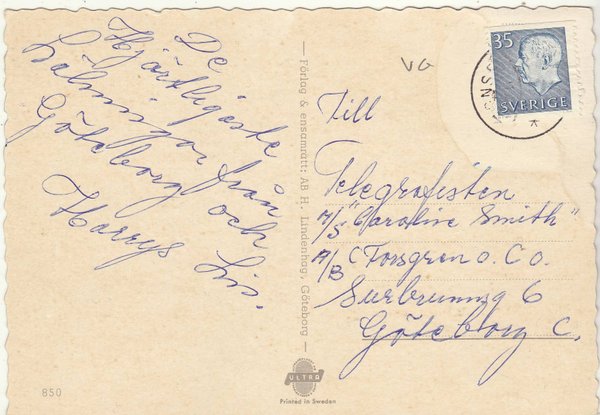 De
Hjärtligaste
Hälsningar från
Göteborg och
Harrys Lis.
850
— Förlag & ensamrätt: AB H. Lindenhag, Göteborg —
ULTRA
Printed in Sweden
VG
35
SVERIGE
Till
Telegrafisten
M/S "Caroline Smith"
A/B C Forsgren o. Co.
Surbrunnsg 6
Göteborg C.